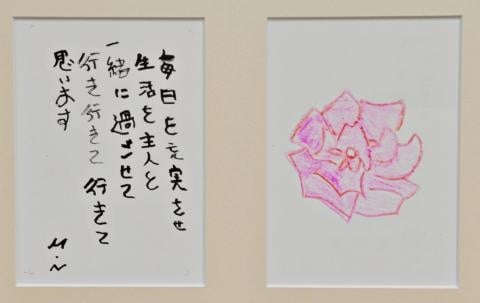 毎日を充実させ
生活を主人と
一緒に過させて
行き行きて行きて
思います
M.N